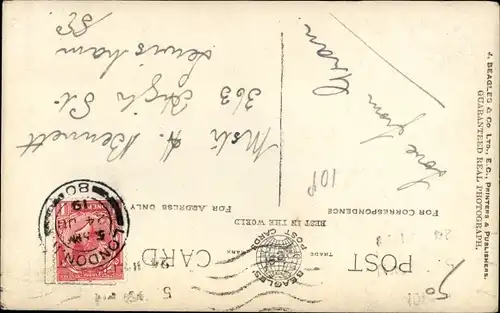 POST CARD
TRADE MARK
BEAGLES' POST CARDS
BEST IN THE WORLD
FOR CORRESPONDENCE
FOR ADDRESS ONLY
J. BEAGLES & CO LTD., E.C., PRINTERS & PUBLISHERS.
GUARANTEED REAL PHOTOGRAPH.
LONDON
5 AM
24 JU
19
80
Love from
Gran
H. Bennett
363 High St
Lewisham
10P
50